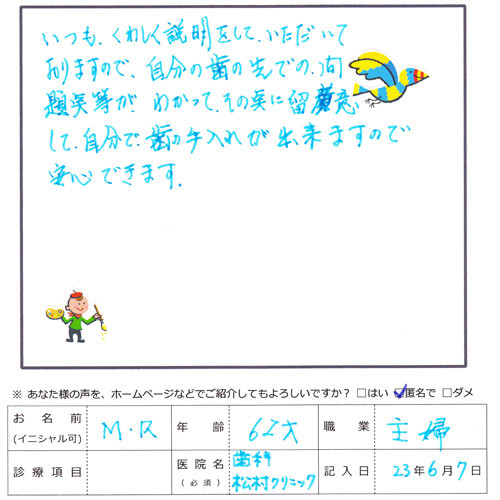 いつも、くわしく説明をして、いただいて
おりますので、自分の歯の先での、問
題点等が、わかって、その点に留意
して、自分で、歯の手入れが出来ますので
安心できます.
※ あなた様の声を、ホームページなどでご紹介してもよろしいですか? □はい ☑匿名で □ダメ
お名前 (イニシャル可) M・R 年齢 62才 職業 主婦
診療項目 医院名 (必須) 歯科 松村クリニック 記入日 23年6月7日